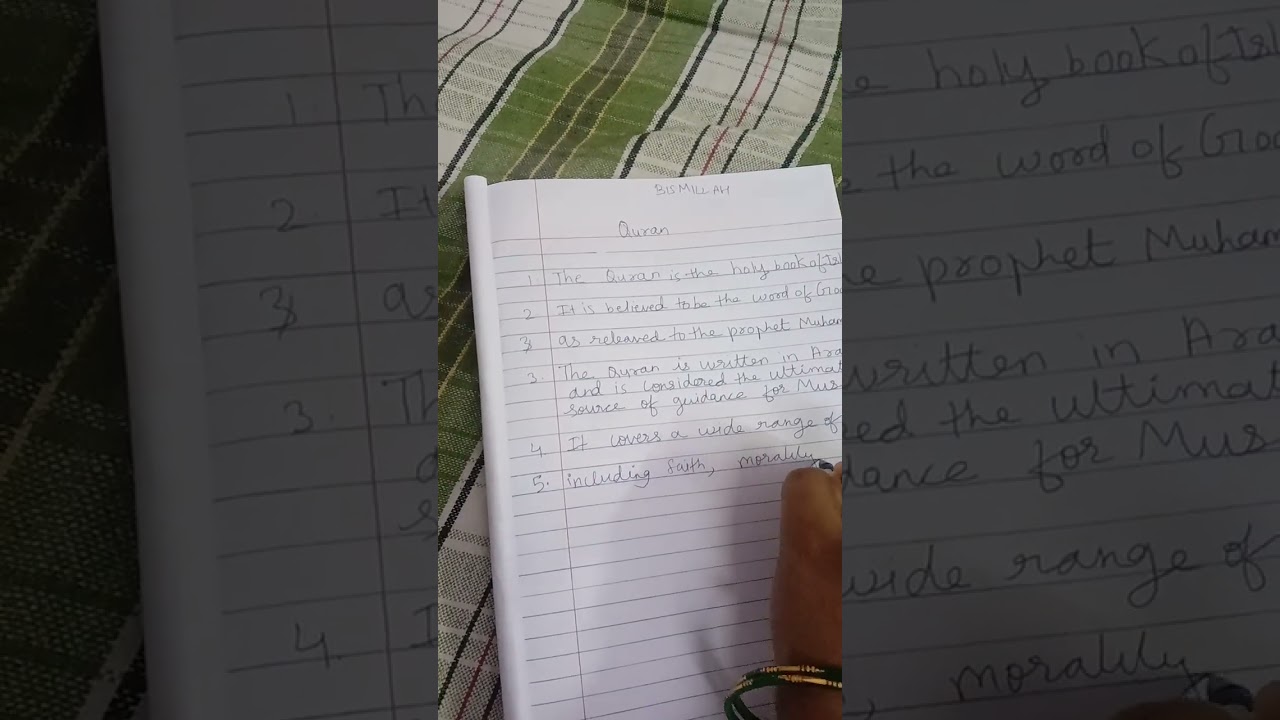 BISMILLAH
Quran
1. The Quran is the holy book of Isl
2. It is believed to be the word of Goo
3. as releaved to the prophet Muham
3. The Quran is written in Ara
and is considered the ultimat
source of guidance for Mus
4. It covers a wide range of
5. including faith, morality